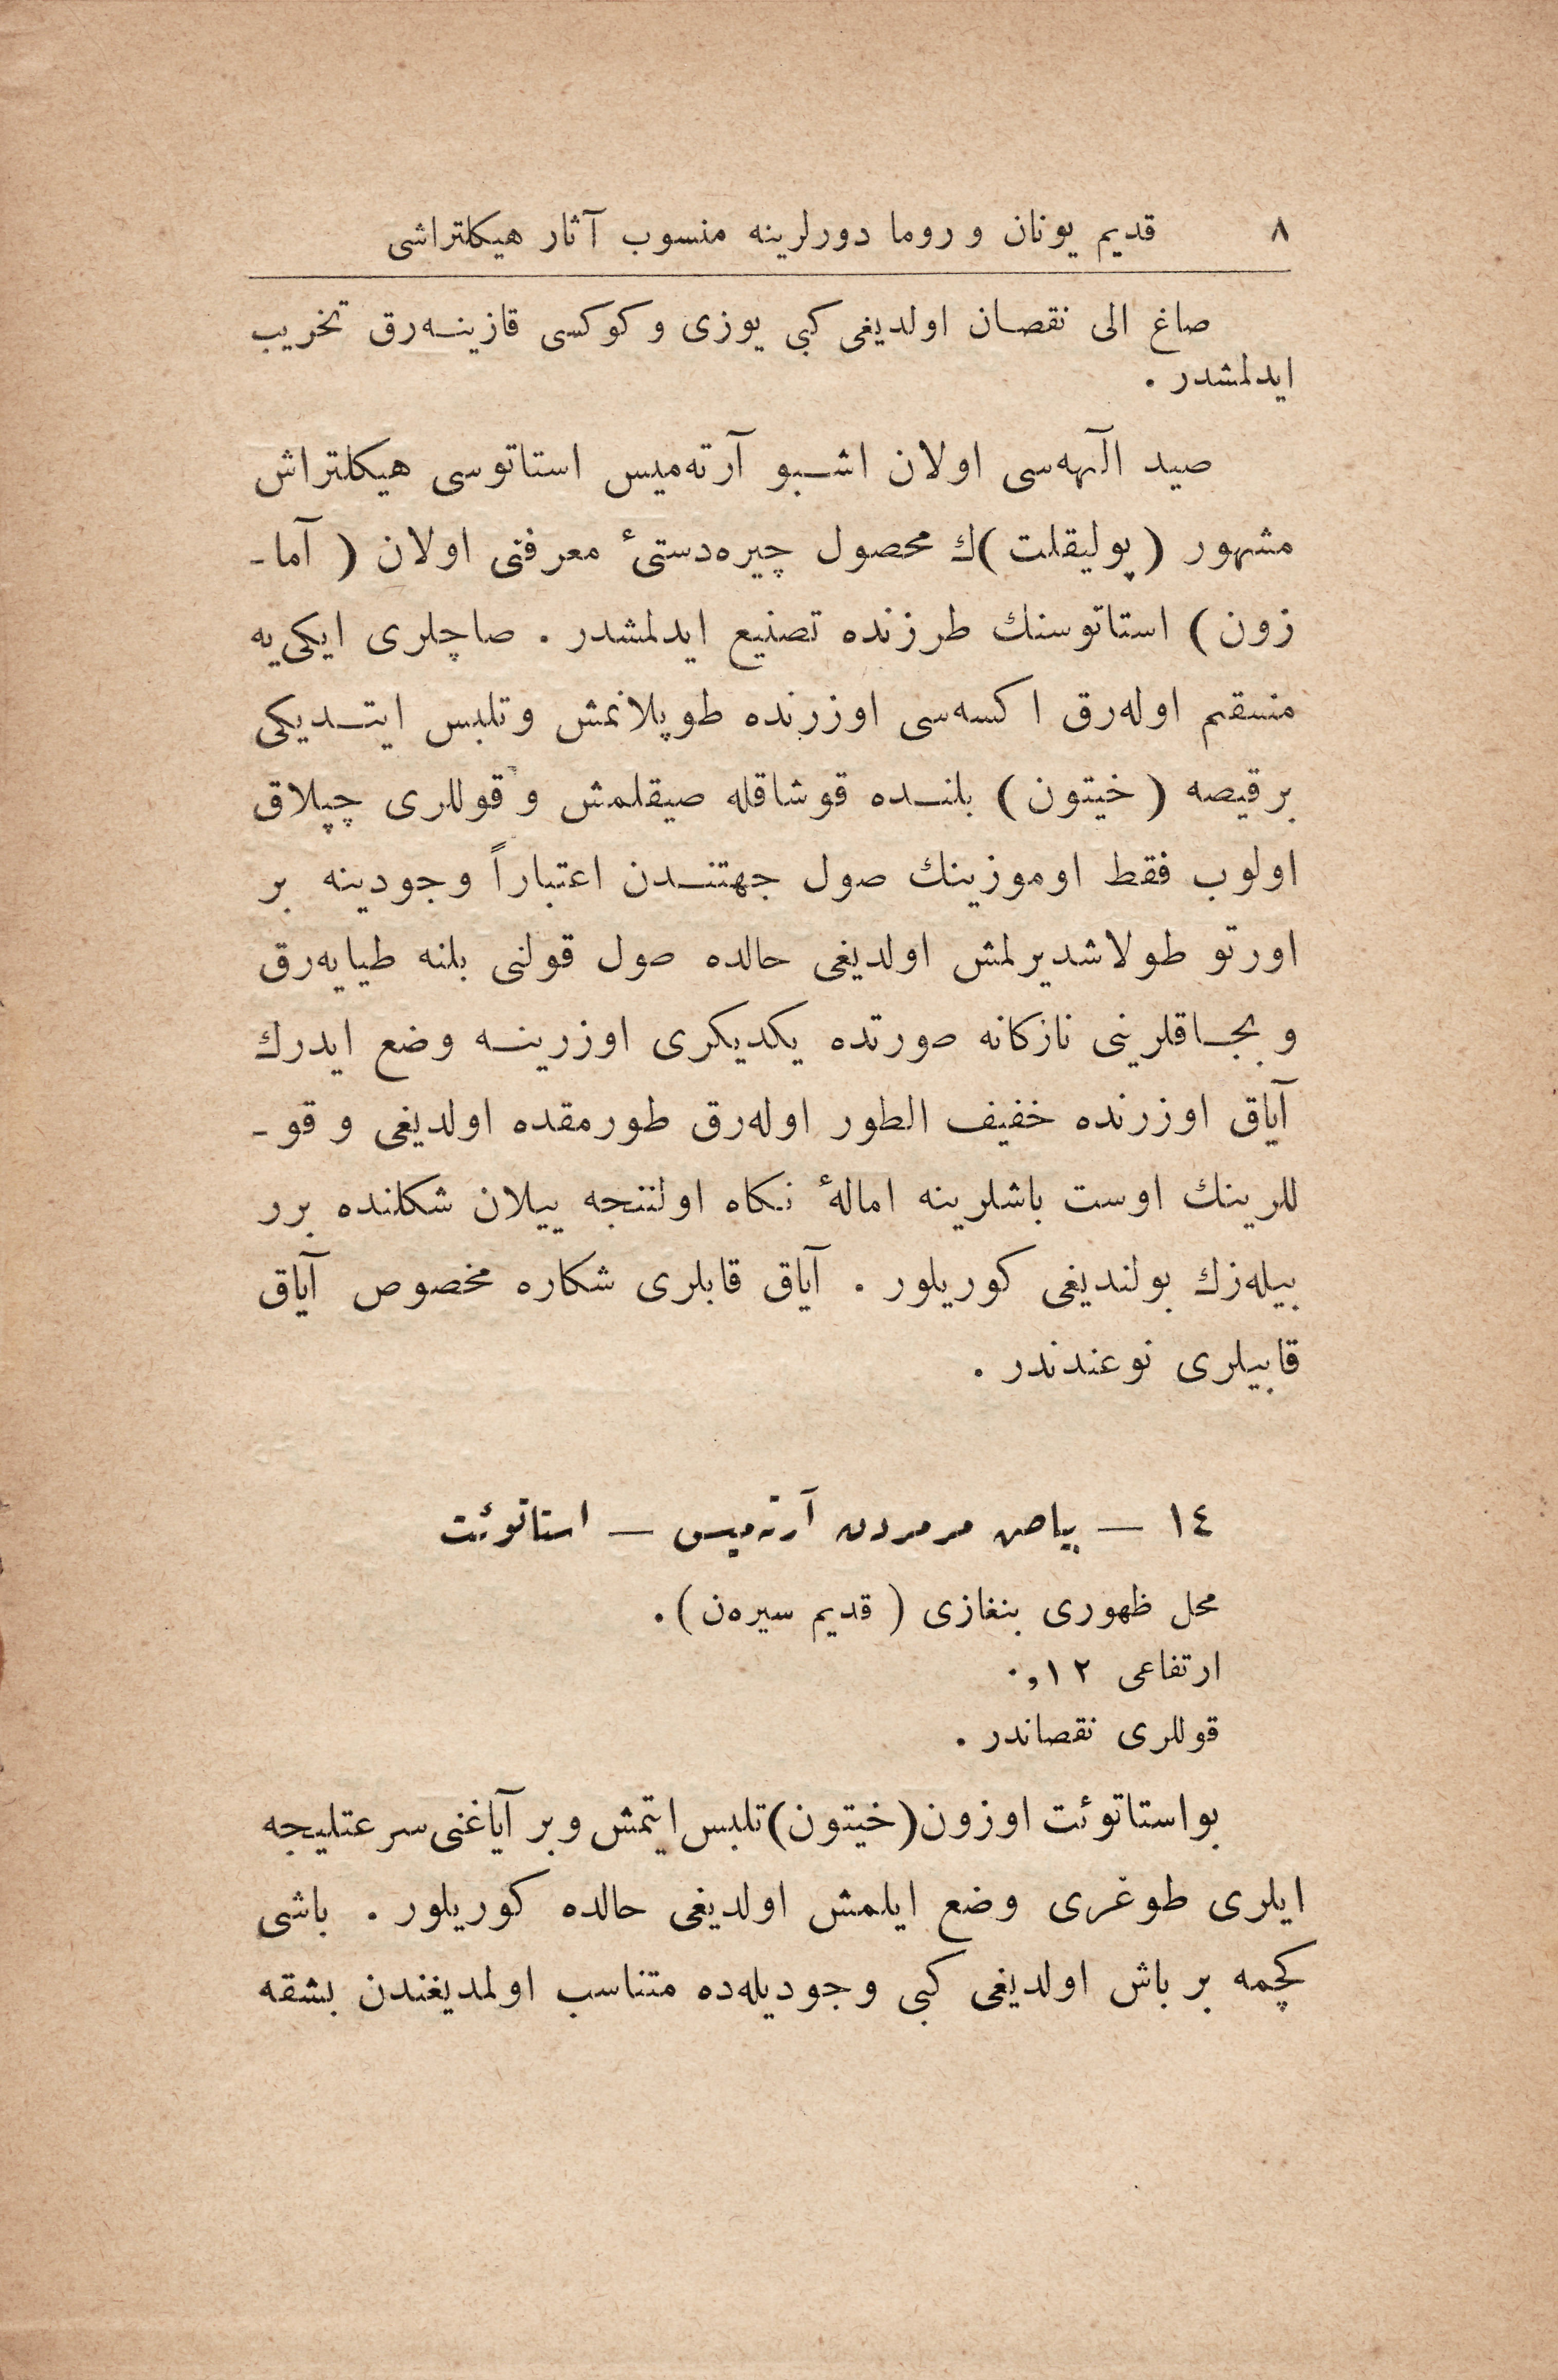 ٨ قديم يونان و روما دورلرينه منسوب آثار هيكلتراشى
صاغ الى نقصان اولديغى كبى يوزى و كوكسى قازينه‌رق تخريب
ايدلمشدر .
صيد آلهه‌سى اولان اشبو آرته‌ميس استاتوسى هيكلتراش
مشهور ( پوليقلت )ك محصول چيره‌دستىٔ معرفتى اولان ( آما-
زون ) استاتوسنك طرزنده تصنيع ايدلمشدر . صاچلرى ايكى‌يه
منسقم اوله‌رق اكسه‌سى اوزرنده طوپلانمش وتلبس ايتديكى
برقيصه ( خيتون ) بلنده قوشاقله صيقلمش و قوللرى چپلاق
اولوب فقط اوموزينك صول جهتندن اعتباراً وجودينه بر
اورتو طولاشديرلمش اولديغى حالده صول قولنى بلنه طيايه‌رق
و بجاقلرينى نازكانه صورتده يكديكرى اوزرينه وضع ايدرك
آياق اوزرنده خفيف الطور اوله‌رق طورمقده اولديغى و قو-
للرينك اوست باشلرينه امالهٔ نكاه اولننجه ييلان شكلنده برر
بيله‌زك بولنديغى كوريلور . آياق قابلرى شكاره مخصوص آياق
قابيلرى نوعندندر .
١٤ — بياض مرمردن آرته‌ميس — استاتوئت
محل ظهورى بنغازى ( قديم سيره‌ن ) .
ارتفاعى ٠,١٢
قوللرى نقصاندر .
بو استاتوئت اوزون ( خيتون ) تلبس ايتمش و بر آياغنى سرعتليجه
ايلرى طوغرى وضع ايلمش اولديغى حالده كوريلور . باشى
كچمه بر باش اولديغى كبى وجوديله‌ده متناسب اولمديغندن بشقه